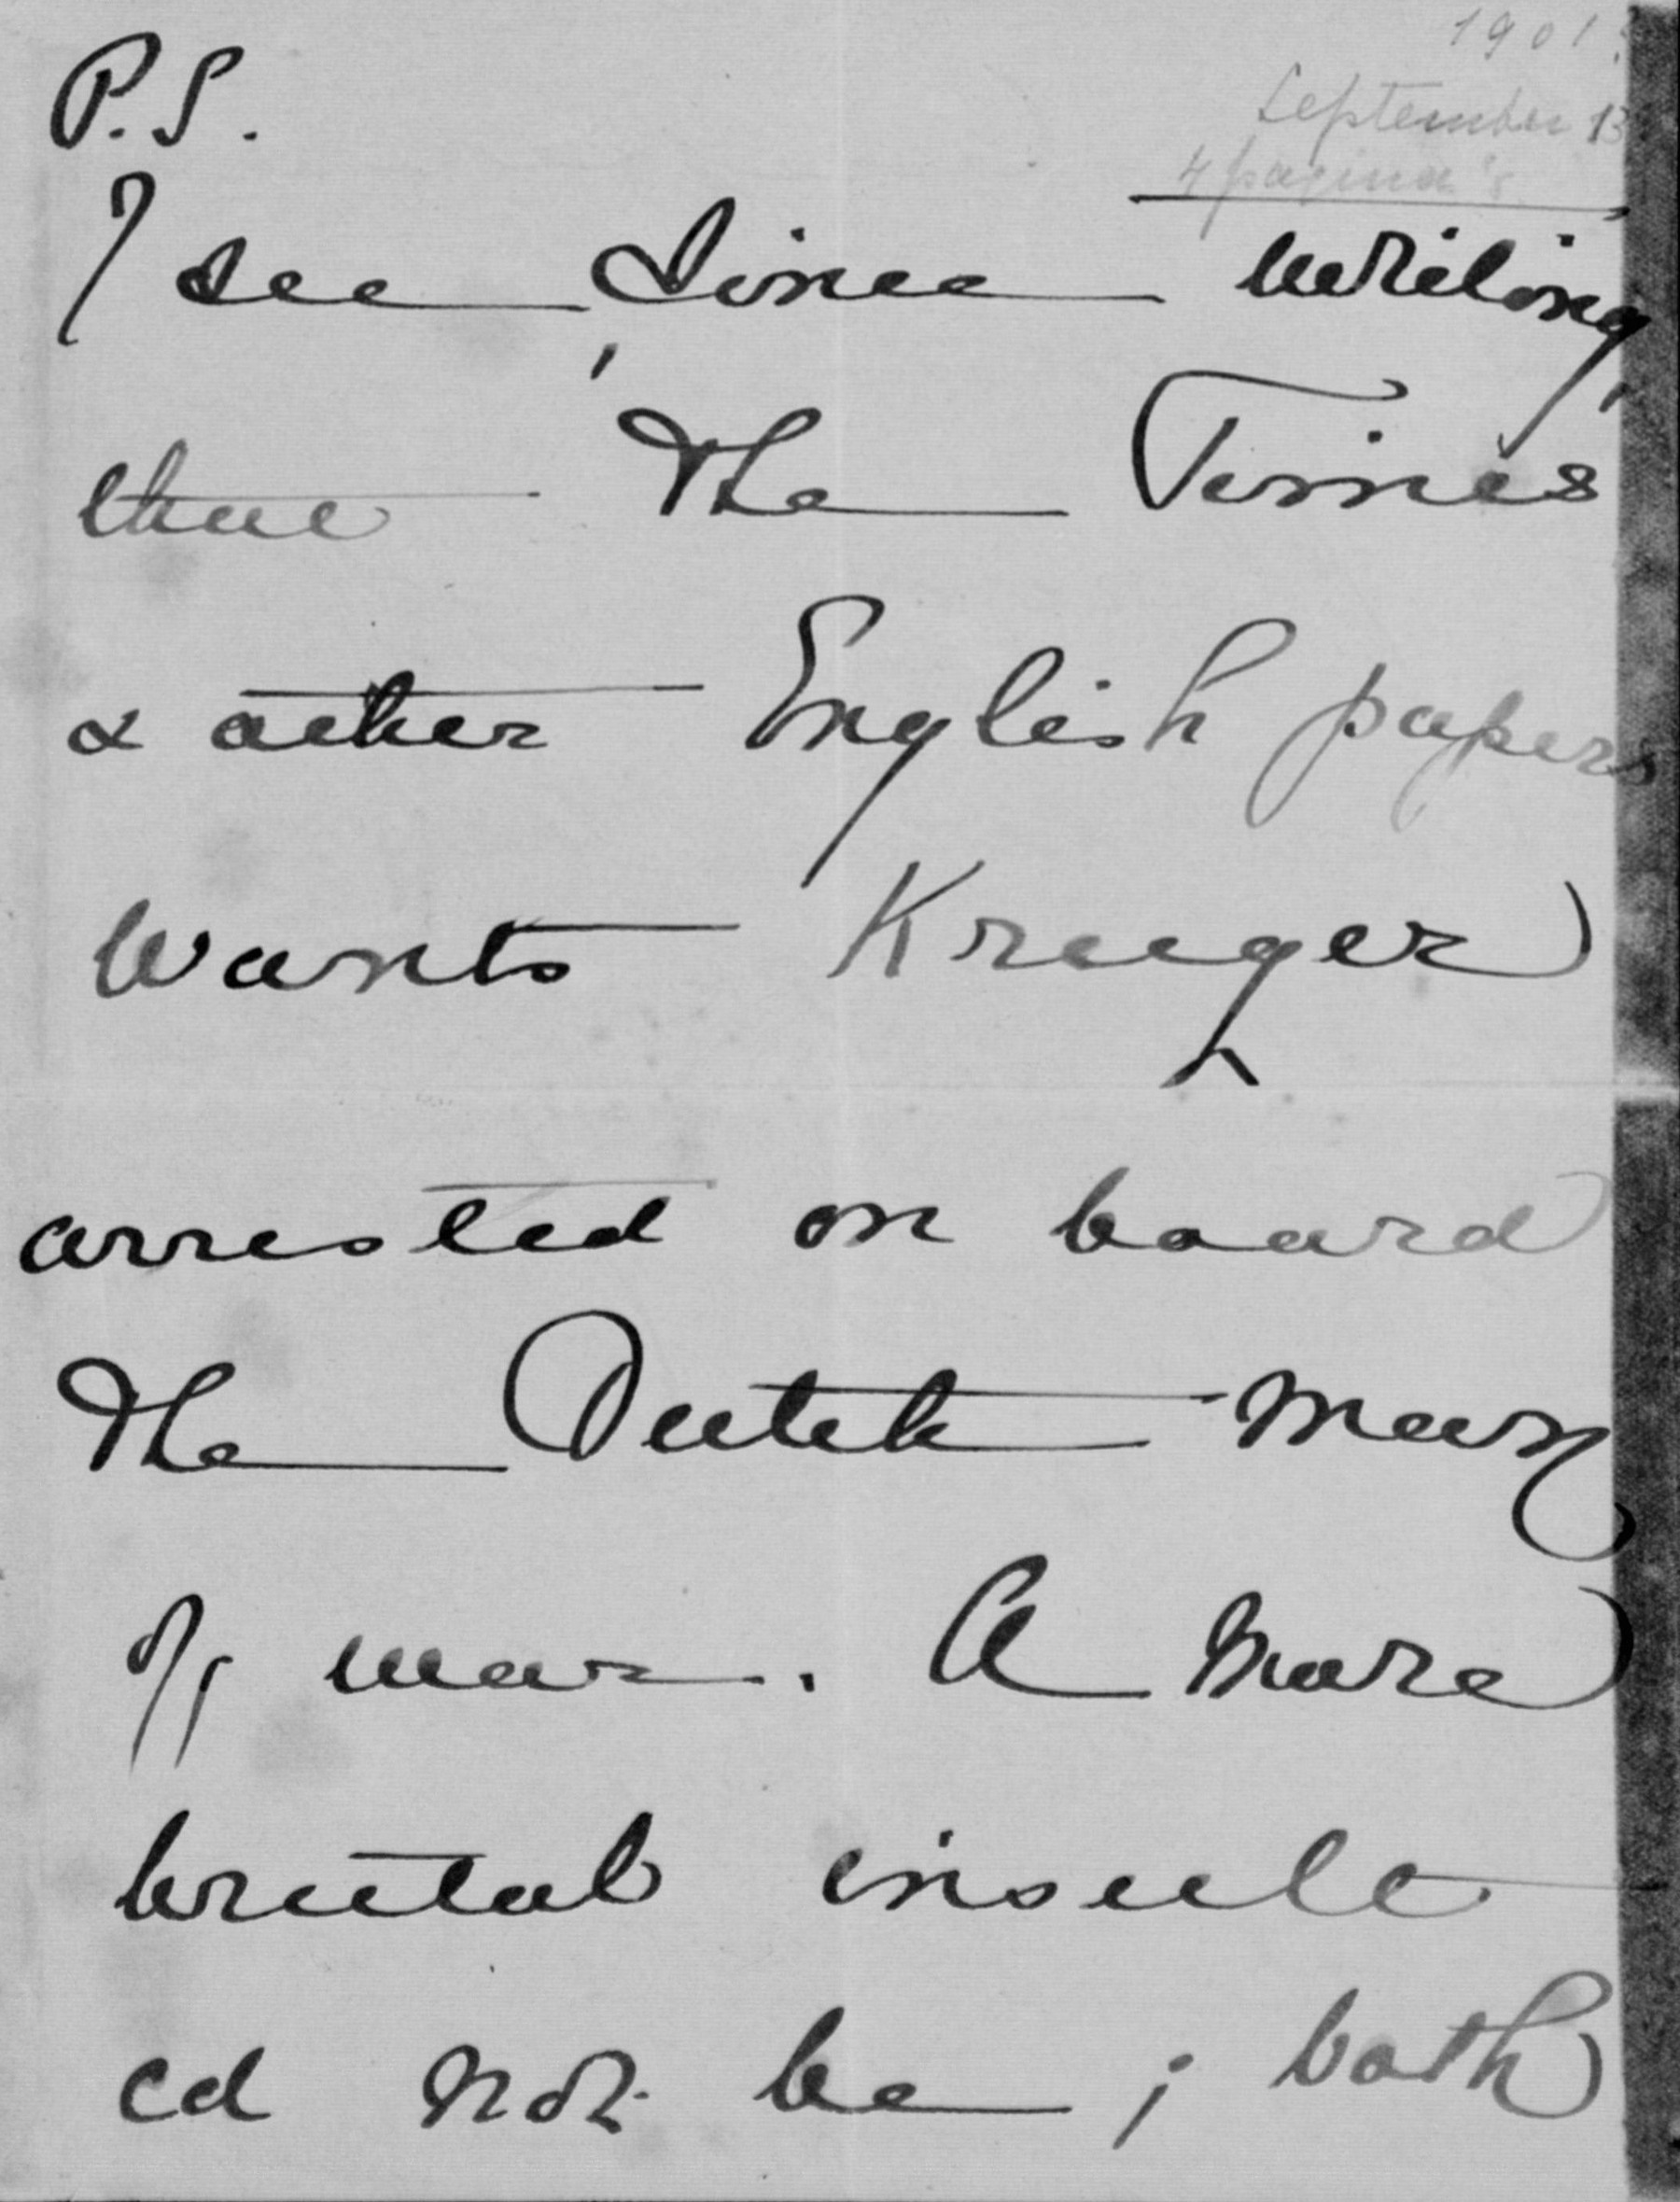 1901?
September 13
4 pagina's
P.S.
I see, since writing,
that the Times
& other English papers
wants Kruger
arrested on board
the Dutch man
of war. A more
brutal insult
cd not be; both